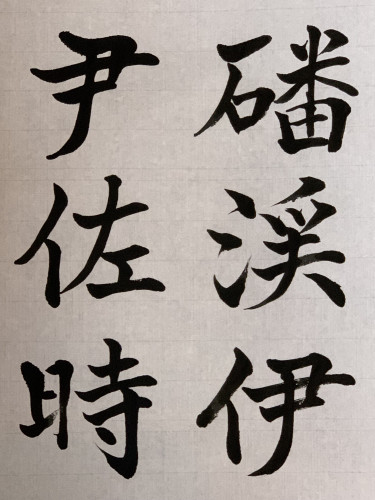 磻溪伊
尹佐時